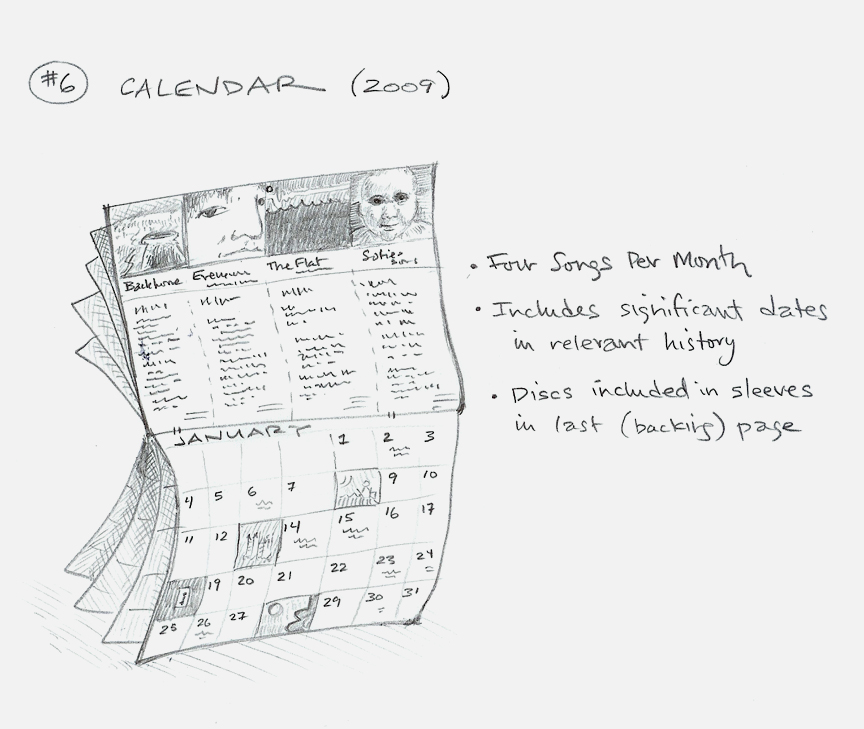 #6 CALENDAR (2009)
Backbone The Flat
• Four Songs Per Month
• Includes significant dates
in relevant history
• Discs included in sleeves
in last (backing) page
JANUARY
1 2 3
4 5 6 7 9 10
11 12 14 15 16 17
19 20 21 22 23 24
25 26 27 29 30 31